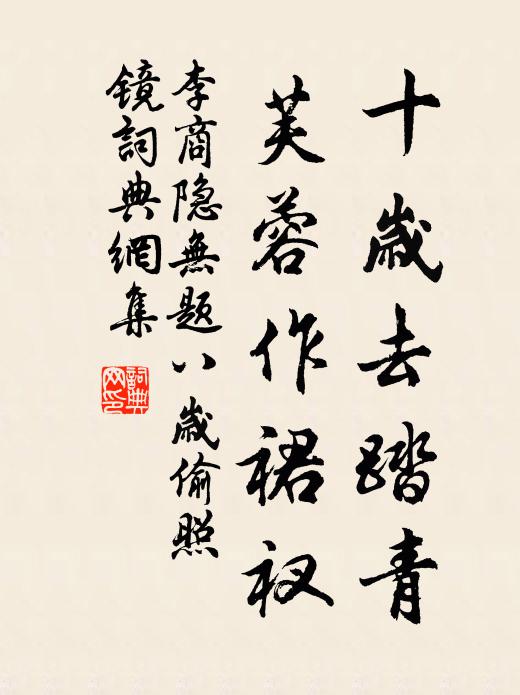 十歲去踏青
芙蓉作裙衩
李商隐無題八歲偷照
鏡詞典網集
詞典
网印